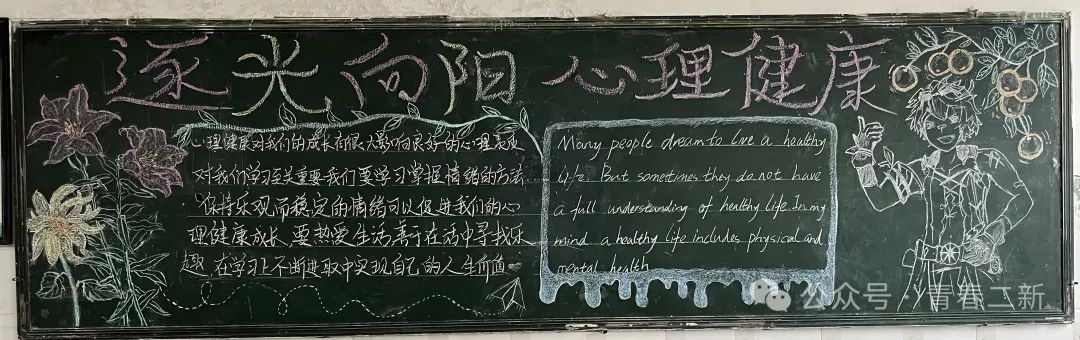 逐光向阳 心理健康
心理健康对我们的成长有很大影响良好的心理素质
对我们学习至关重要我们要学习掌握情绪的方法.
保持乐观而稳定的情绪可以促进我们的心
理健康成长,要热爱生活善于在活中寻找乐
趣,在学习上不断进取中实现自己的人生价值
Many people dream to live a healthy
life. But sometimes they do not have
a full understanding of healthy life. In my
mind a healthy life includes physical and
mental health
公众号·青春二新